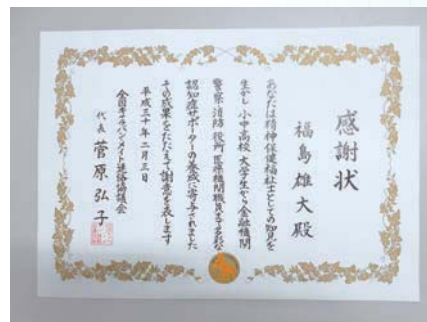 感謝状
福島雄大殿
あなたは精神保健福祉士としての知見を
生かし小中高校、大学生から金融機関
警察、消防、役所、医療機関職員まで多彩な
認知症サポーターの養成に寄与されました
その成果をたたえて謝意を表します
平成三十年二月三日
全国キャラバン・メイト連絡協議会
代表 菅原弘子